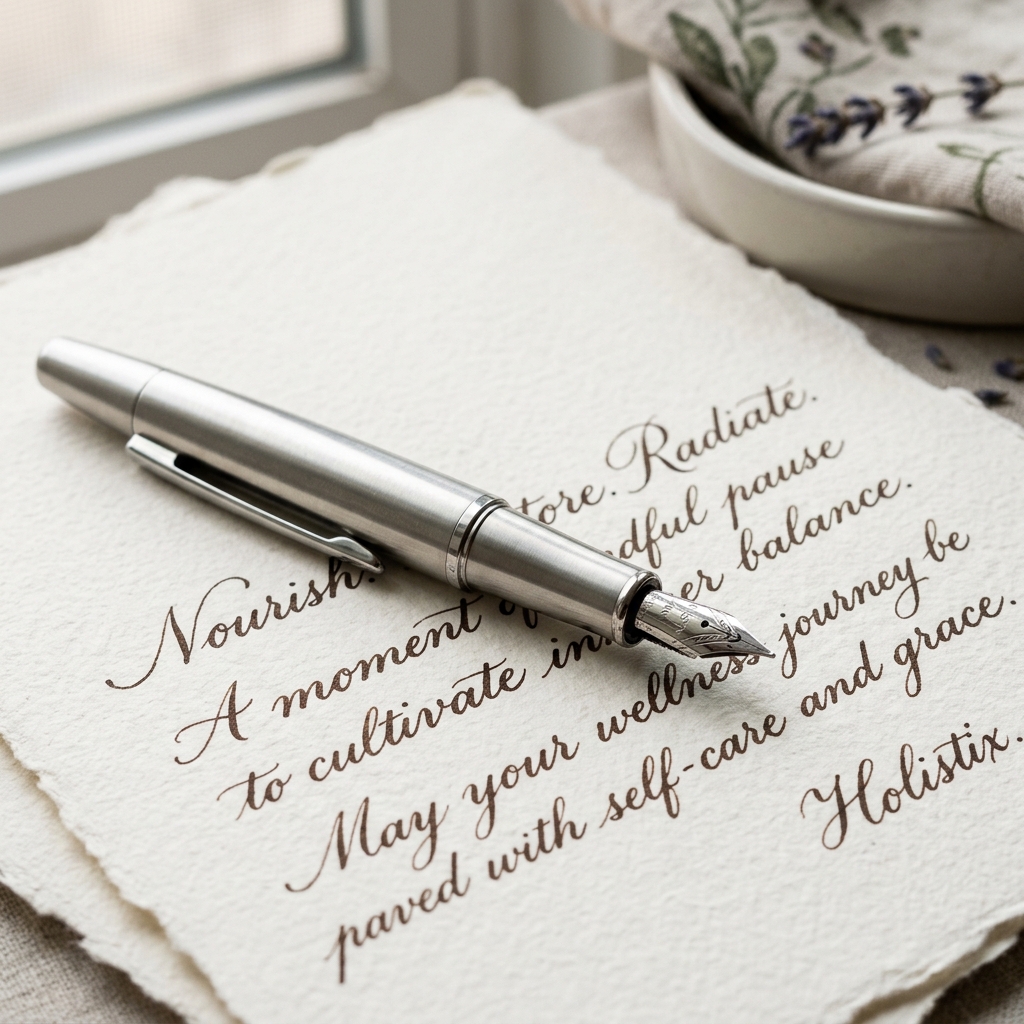 Nourish. tore. Radiate.
A moment dful pause
to cultivate in er balance.
May your wellness journey be
paved with self-care and grace.
Holistix.